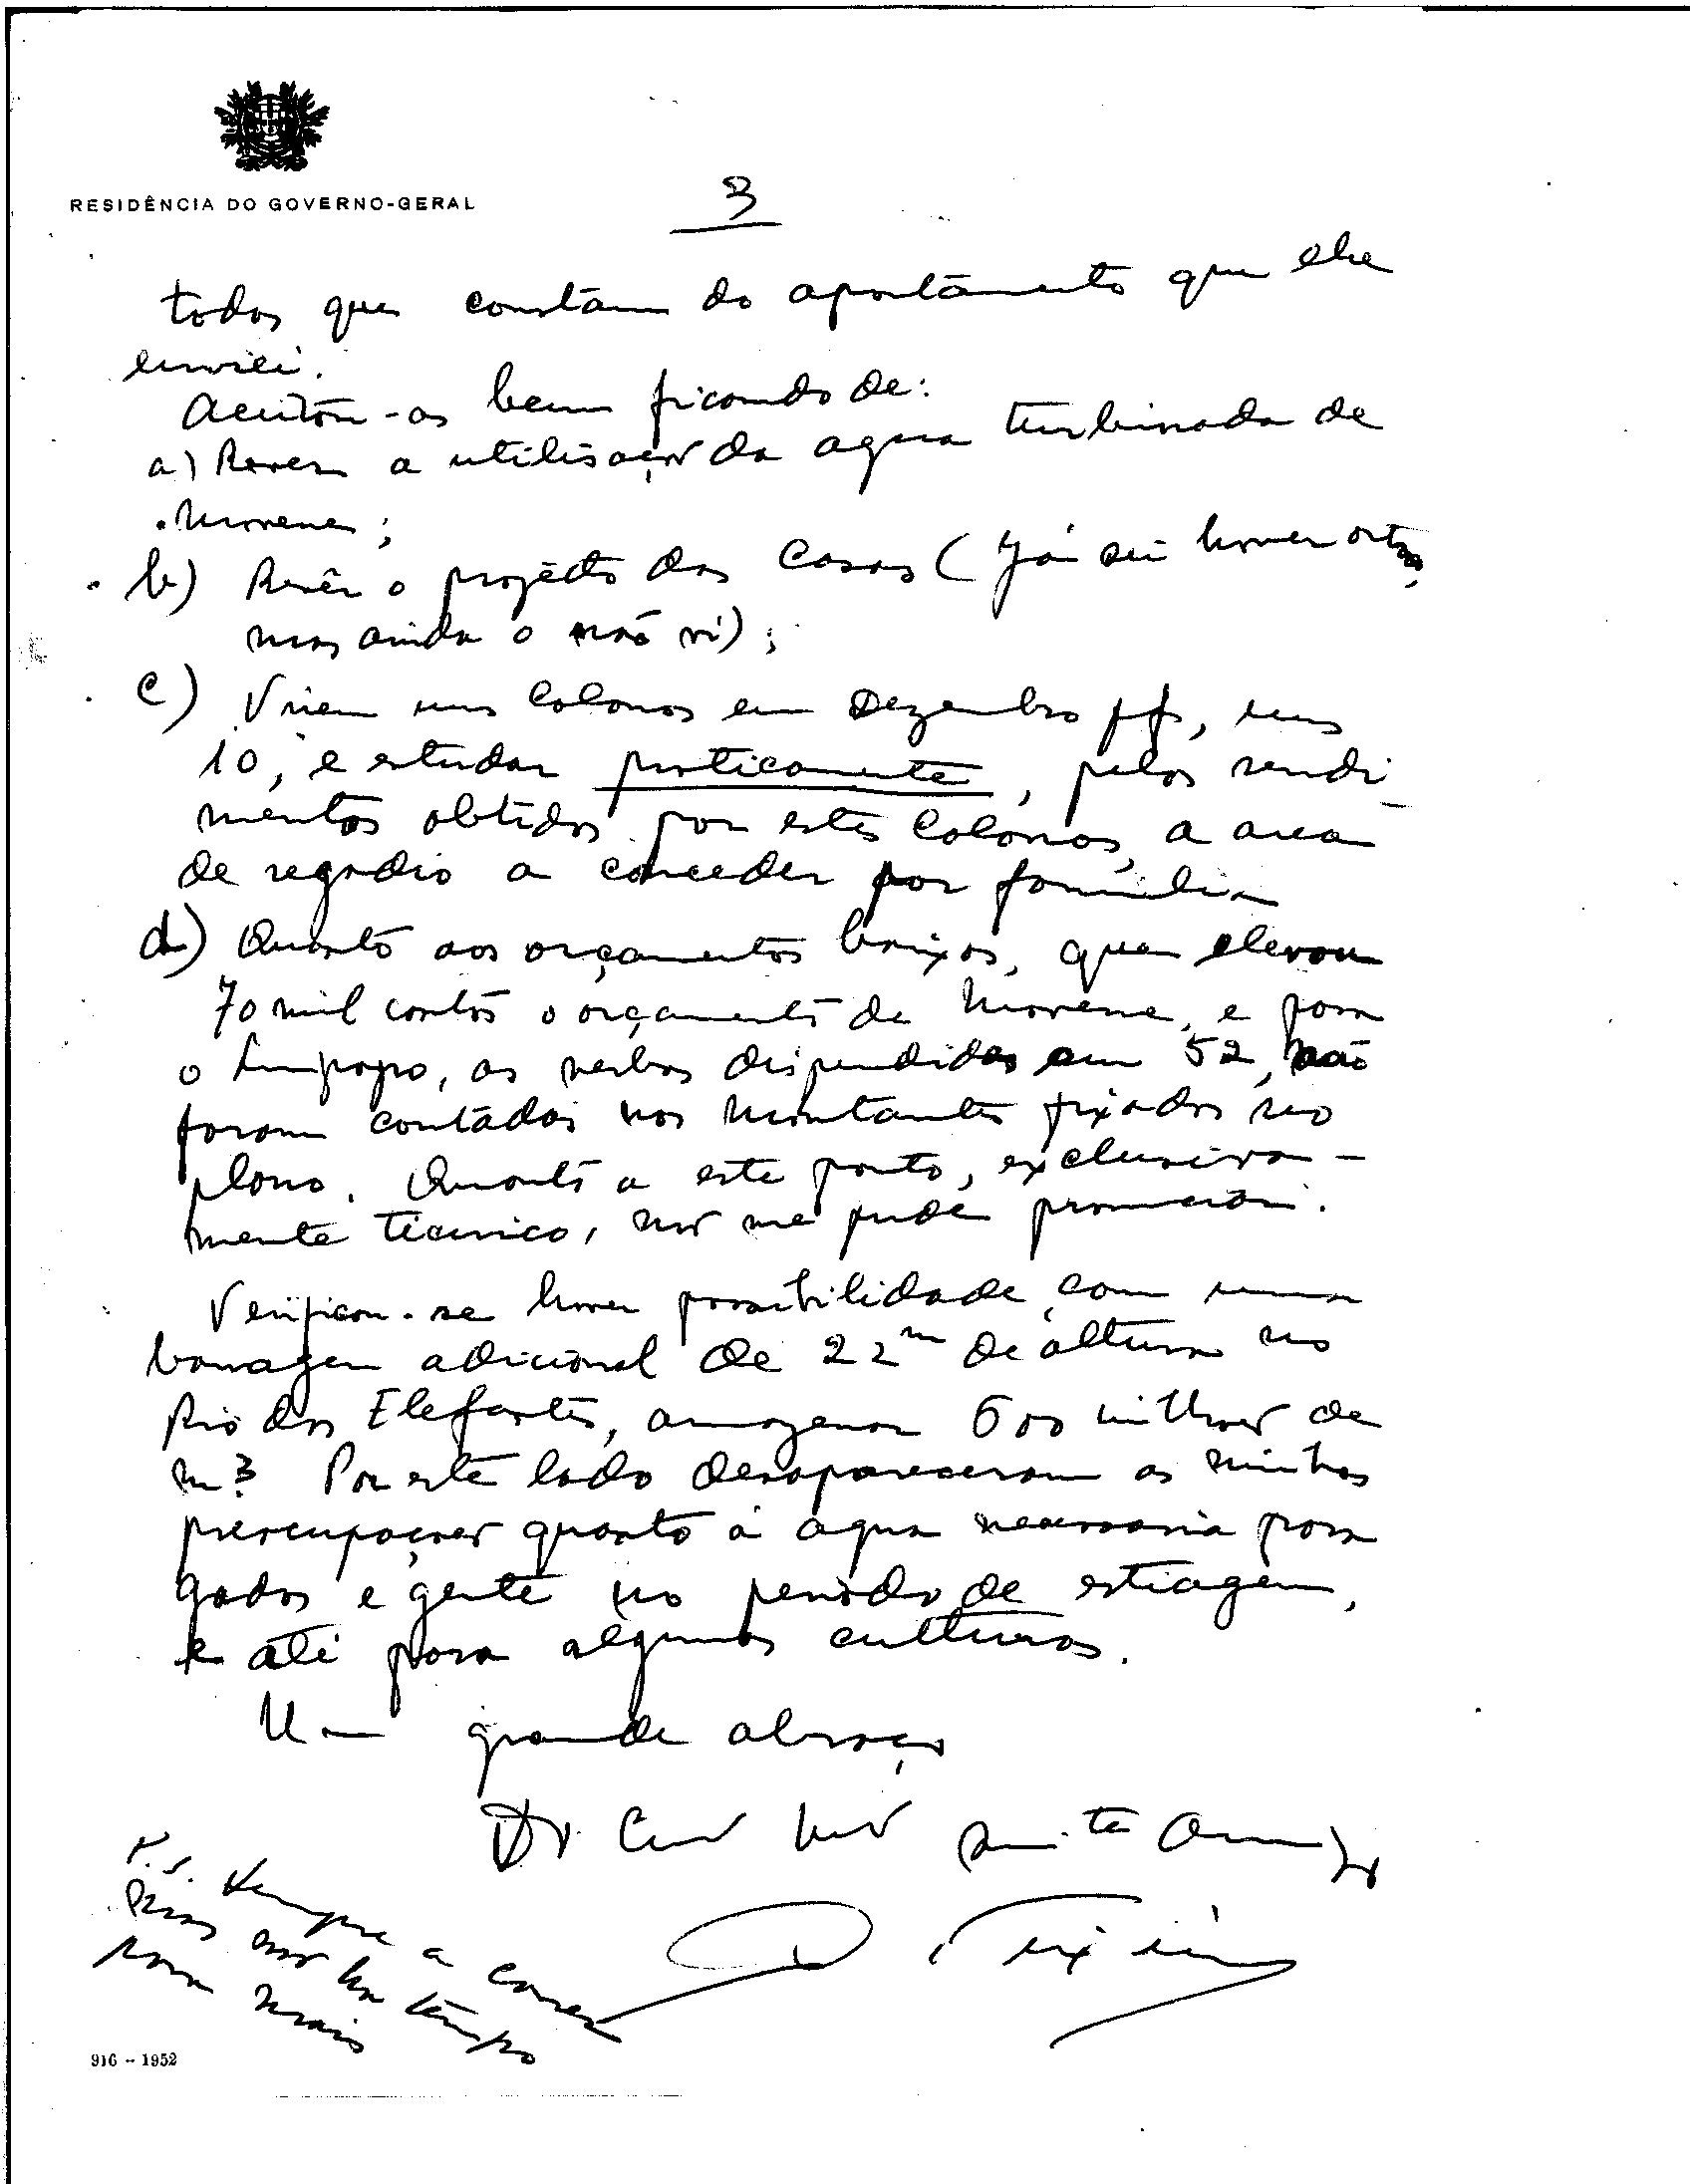 RESIDÊNCIA DO GOVERNO-GERAL
3
todos que constam do apontamento que lhe
enviei.
Aceitou-os bem ficando de:
a) Rever a utilisação da agua turbinada de
Movene;
b) Revêr o projécto das Casas (já sei haver outro,
mas ainda o não vi);
c) Virem uns Colonos em Dezembro pf, uns
10, e estudar práticamente, pelos rendi-
mentos obtidos por estes Colonos, a area
de regadio a conceder por familia
d) Quanto aos orçamentos baixos, que elevou
70 mil contos o orçamento de Movene, e para
o Limpopo, as verbas dispendidas em 52, não
foram contadas nos montantes fixados no
plano. Quanto a este ponto, exclusiva-
mente técnico, não me pude pronunciar.
Verificou-se haver possibilidade, com uma
barragem adicional de 22m de altura no
Rio dos Elefantes, armazenar 600 milhões de
m3. Por este lado desapareceram as minhas
preocupações quanto á agua necessaria para
gados e gente no periodo de estiagem,
e até para algumas culturas.
Um grande abraço
Teixeira
P.S. Sempre a correr
mas não ha tempo
para mais
916 - 1952